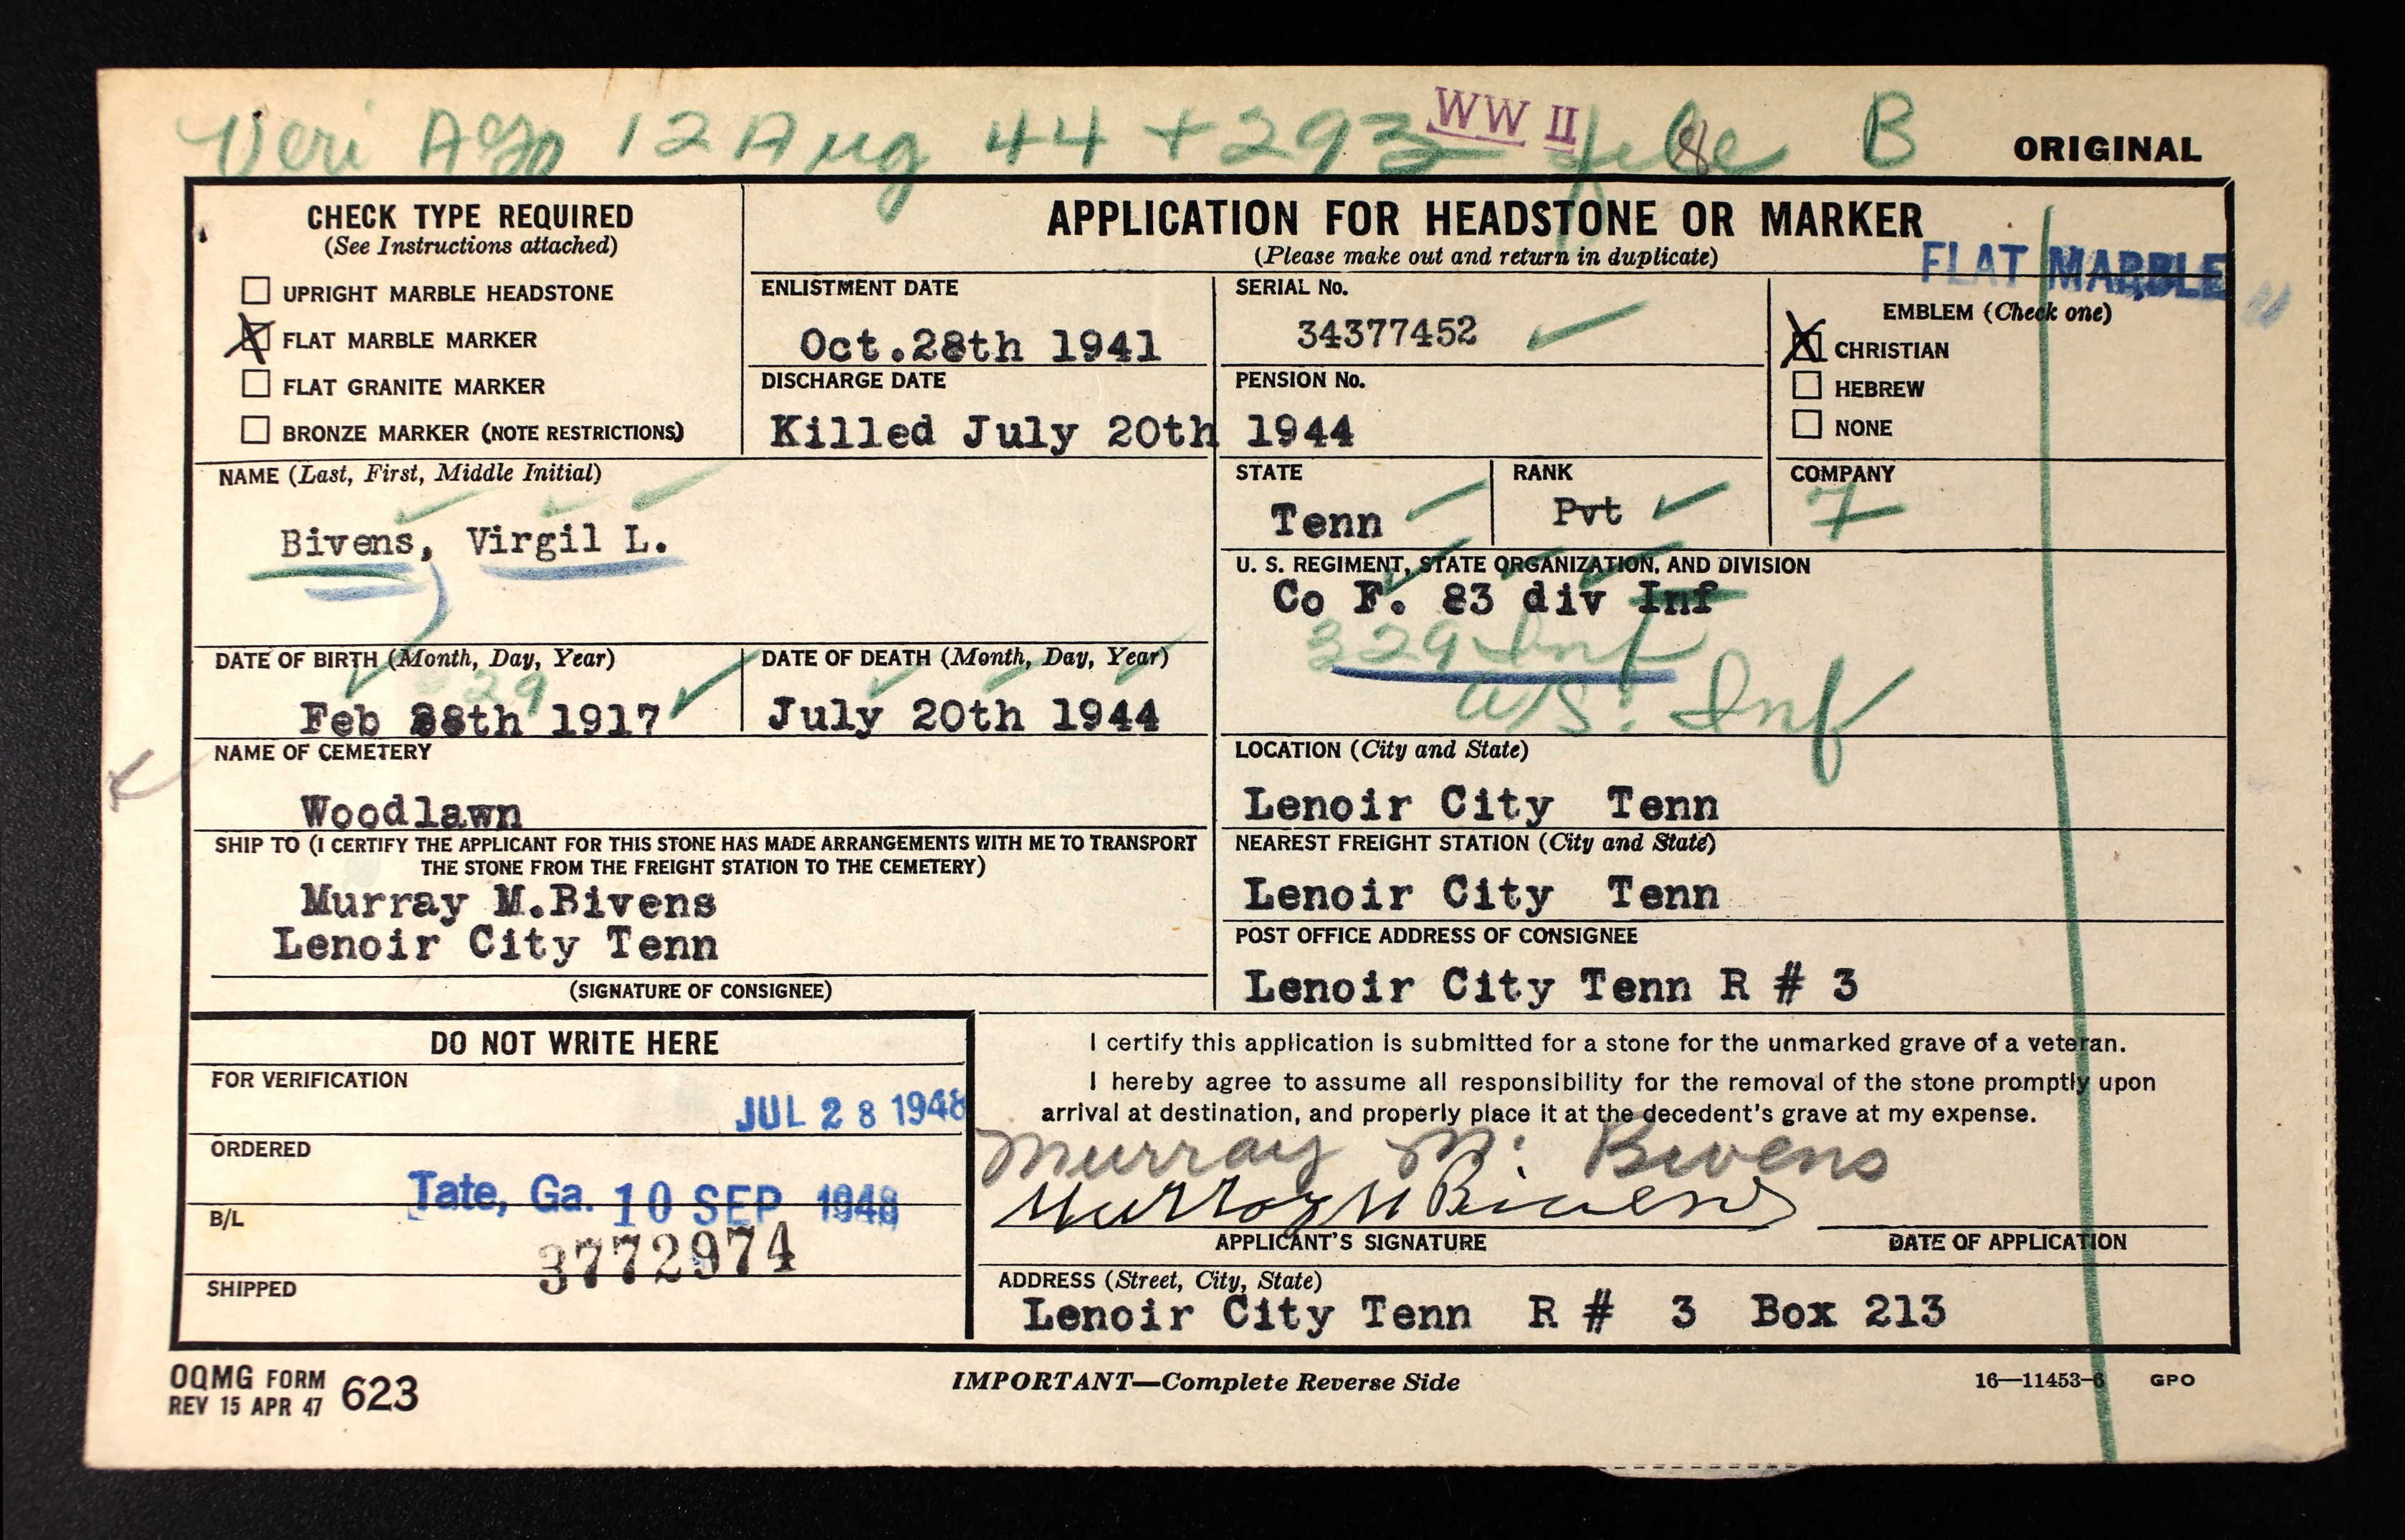 Veri Ago 12 Aug 44 + 293 file B
WW II
8
ORIGINAL
CHECK TYPE REQUIRED
(See Instructions attached)
UPRIGHT MARBLE HEADSTONE
FLAT MARBLE MARKER
FLAT GRANITE MARKER
BRONZE MARKER (NOTE RESTRICTIONS)
APPLICATION FOR HEADSTONE OR MARKER
(Please make out and return in duplicate)
FLAT MARBLE
ENLISTMENT DATE
Oct.28th 1941
SERIAL No.
34377452
EMBLEM (Check one)
CHRISTIAN
HEBREW
NONE
DISCHARGE DATE
PENSION No.
Killed July 20th 1944
NAME (Last, First, Middle Initial)
Bivens, Virgil L.
STATE
Tenn
RANK
Pvt
COMPANY
7
U. S. REGIMENT, STATE ORGANIZATION, AND DIVISION
Co F. 83 div Inf
329 Inf
U.S. Inf
DATE OF BIRTH (Month, Day, Year)
29
Feb 28th 1917
DATE OF DEATH (Month, Day, Year)
July 20th 1944
NAME OF CEMETERY
Woodlawn
LOCATION (City and State)
Lenoir City Tenn
SHIP TO (I CERTIFY THE APPLICANT FOR THIS STONE HAS MADE ARRANGEMENTS WITH ME TO TRANSPORT
THE STONE FROM THE FREIGHT STATION TO THE CEMETERY)
Murray M.Bivens
Lenoir City Tenn
(SIGNATURE OF CONSIGNEE)
NEAREST FREIGHT STATION (City and State)
Lenoir City Tenn
POST OFFICE ADDRESS OF CONSIGNEE
Lenoir City Tenn R # 3
DO NOT WRITE HERE
FOR VERIFICATION
JUL 28 1948
ORDERED
Tate, Ga. 10 SEP 1948
B/L
3772974
SHIPPED
I certify this application is submitted for a stone for the unmarked grave of a veteran.
I hereby agree to assume all responsibility for the removal of the stone promptly upon
arrival at destination, and properly place it at the decedent's grave at my expense.
Murray M. Bivens
Murray M Bivens
APPLICANT'S SIGNATURE
DATE OF APPLICATION
ADDRESS (Street, City, State)
Lenoir City Tenn R # 3 Box 213
OQMG FORM 623
REV 15 APR 47
IMPORTANT—Complete Reverse Side
16—11453-6 GPO